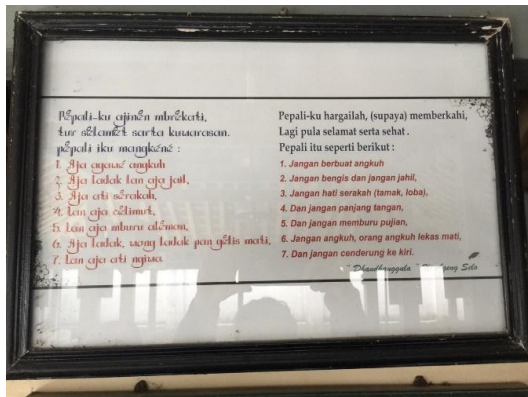 Pêpali-ku ajinên mbrêkati,
tur sêlamet sarta kuwarasan.
pêpali iku mangkéné :
1. Aja agawé angkuh
2. Aja ladak lan aja jail,
3. Aja ati sêrakah,
4. Lan aja cêlimut,
5. Lan aja mburu alêman,
6. Aja ladak, wong ladak pan gêlis mati,
7. Lan aja ati ngiwa.
Pepali-ku hargailah, (supaya) memberkahi,
Lagi pula selamat serta sehat .
Pepali itu seperti berikut :
1. Jangan berbuat angkuh
2. Jangan bengis dan jangan jahil,
3. Jangan hati serakah (tamak, loba),
4. Dan jangan panjang tangan,
5. Dan jangan memburu pujian,
6. Jangan angkuh, orang angkuh lekas mati,
7. Dan jangan cenderung ke kiri.
" Dhandhanggula " Selo